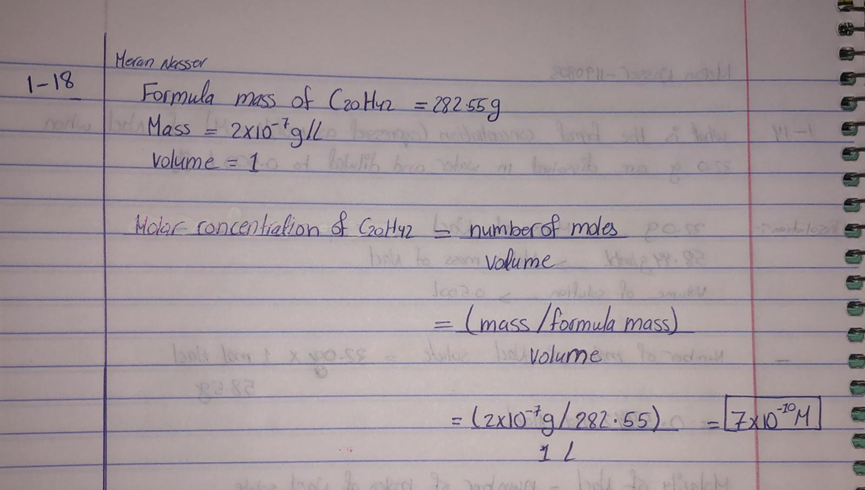 Meran Nasser
1-18
Formula mass of C20H42 = 282.55g
Mass = 2x10⁻⁷g/L
volume = 1
Molar concentration of C20H42 = number of moles
volume
= (mass/formula mass)
volume
= (2x10⁻⁷g/282.55) = 7x10⁻¹⁰M
1 L